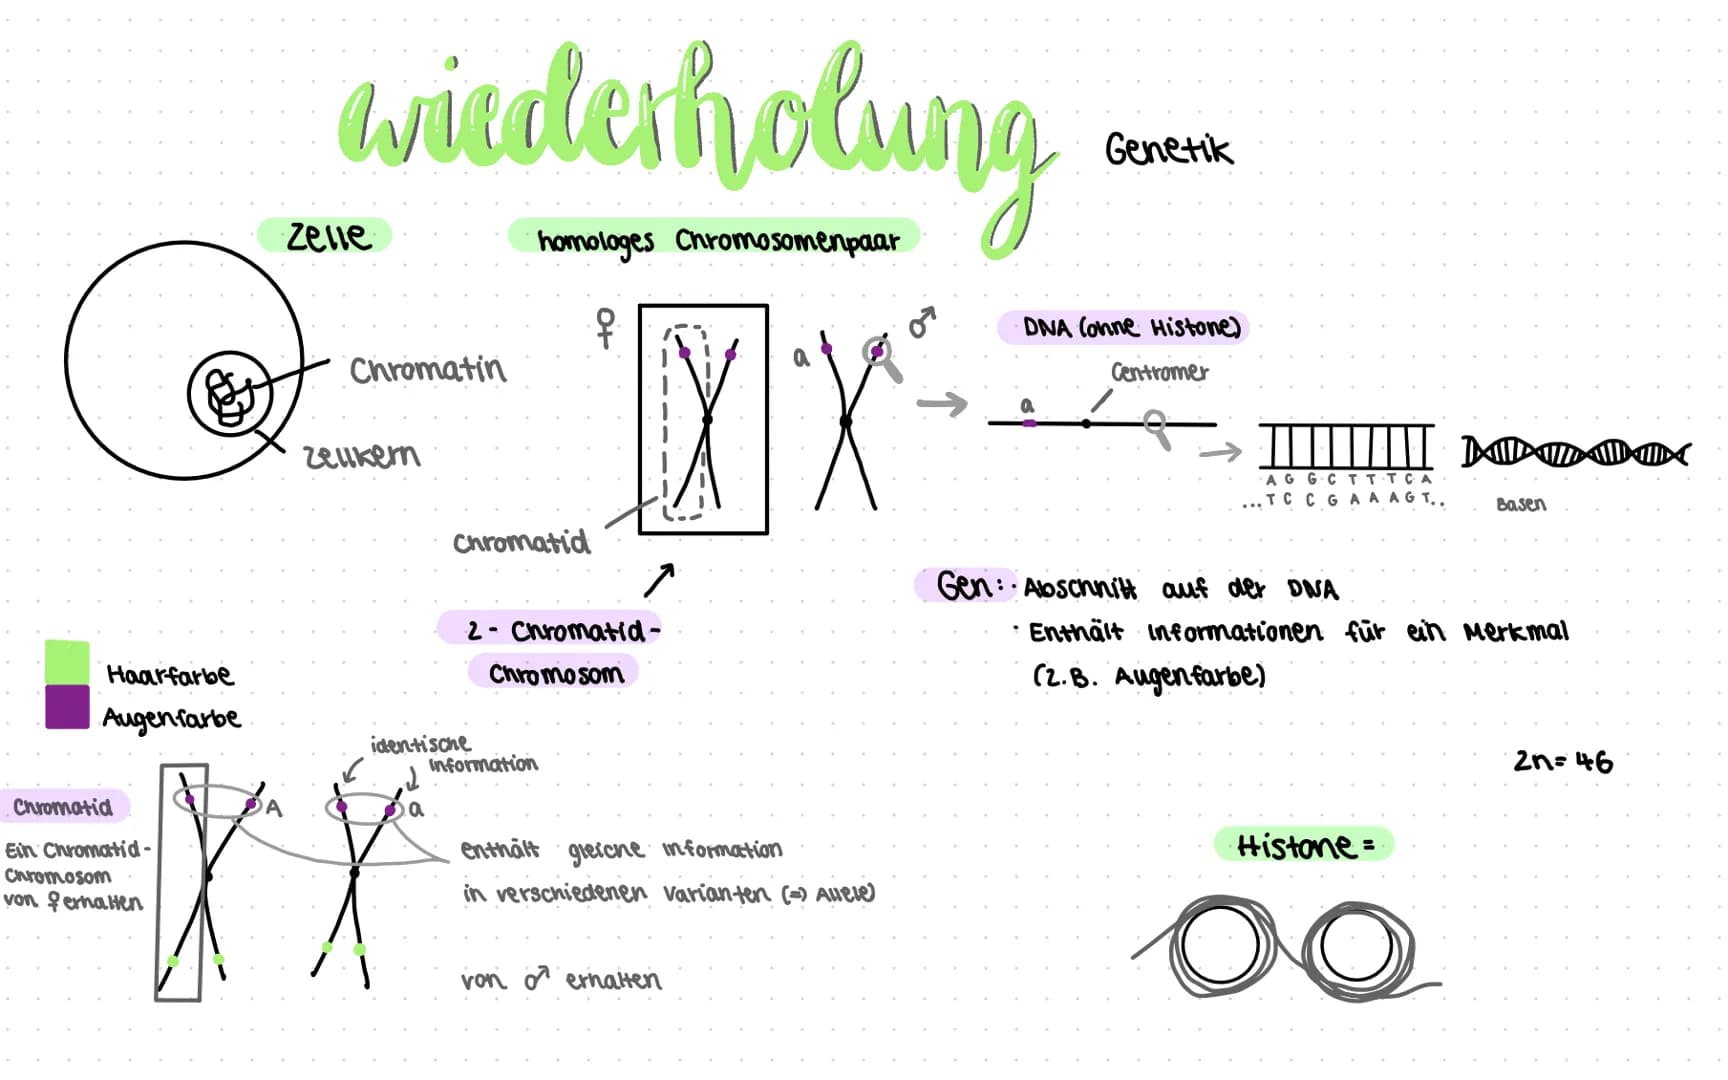 wiederholung
Genetik
Zelle
Chromatin
Zellkern
homologes Chromosomenpaar
♀
a
♂
Chromatid
2-Chromatid-
Chromosom
DNA (ohne Histone)
Centromer
a
A G G C T T T C A
...T C C G A A A G T..
Basen
Gen: · Abschnitt auf der DNA
· Enthält Informationen für ein Merkmal
(z.B. Augenfarbe)
Haarfarbe
Augenfarbe
identische
Information
Chromatid
Ein Chromatid-
Chromosom
von ♀ erhalten
A
a
enthält gleiche Information
in verschiedenen Varianten (=) Allele)
von ♂ erhalten
2n=46
Histone =